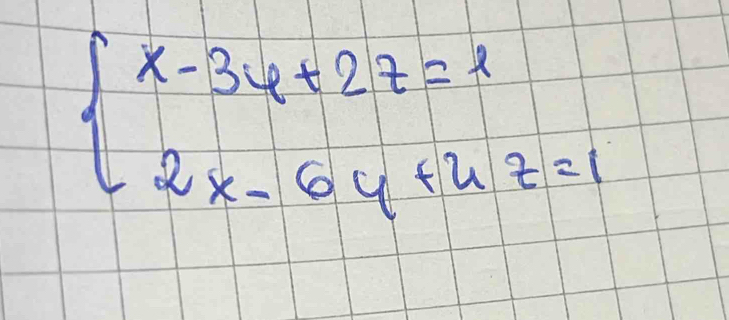 x-3y+2z=1
2x-6y+4z=1